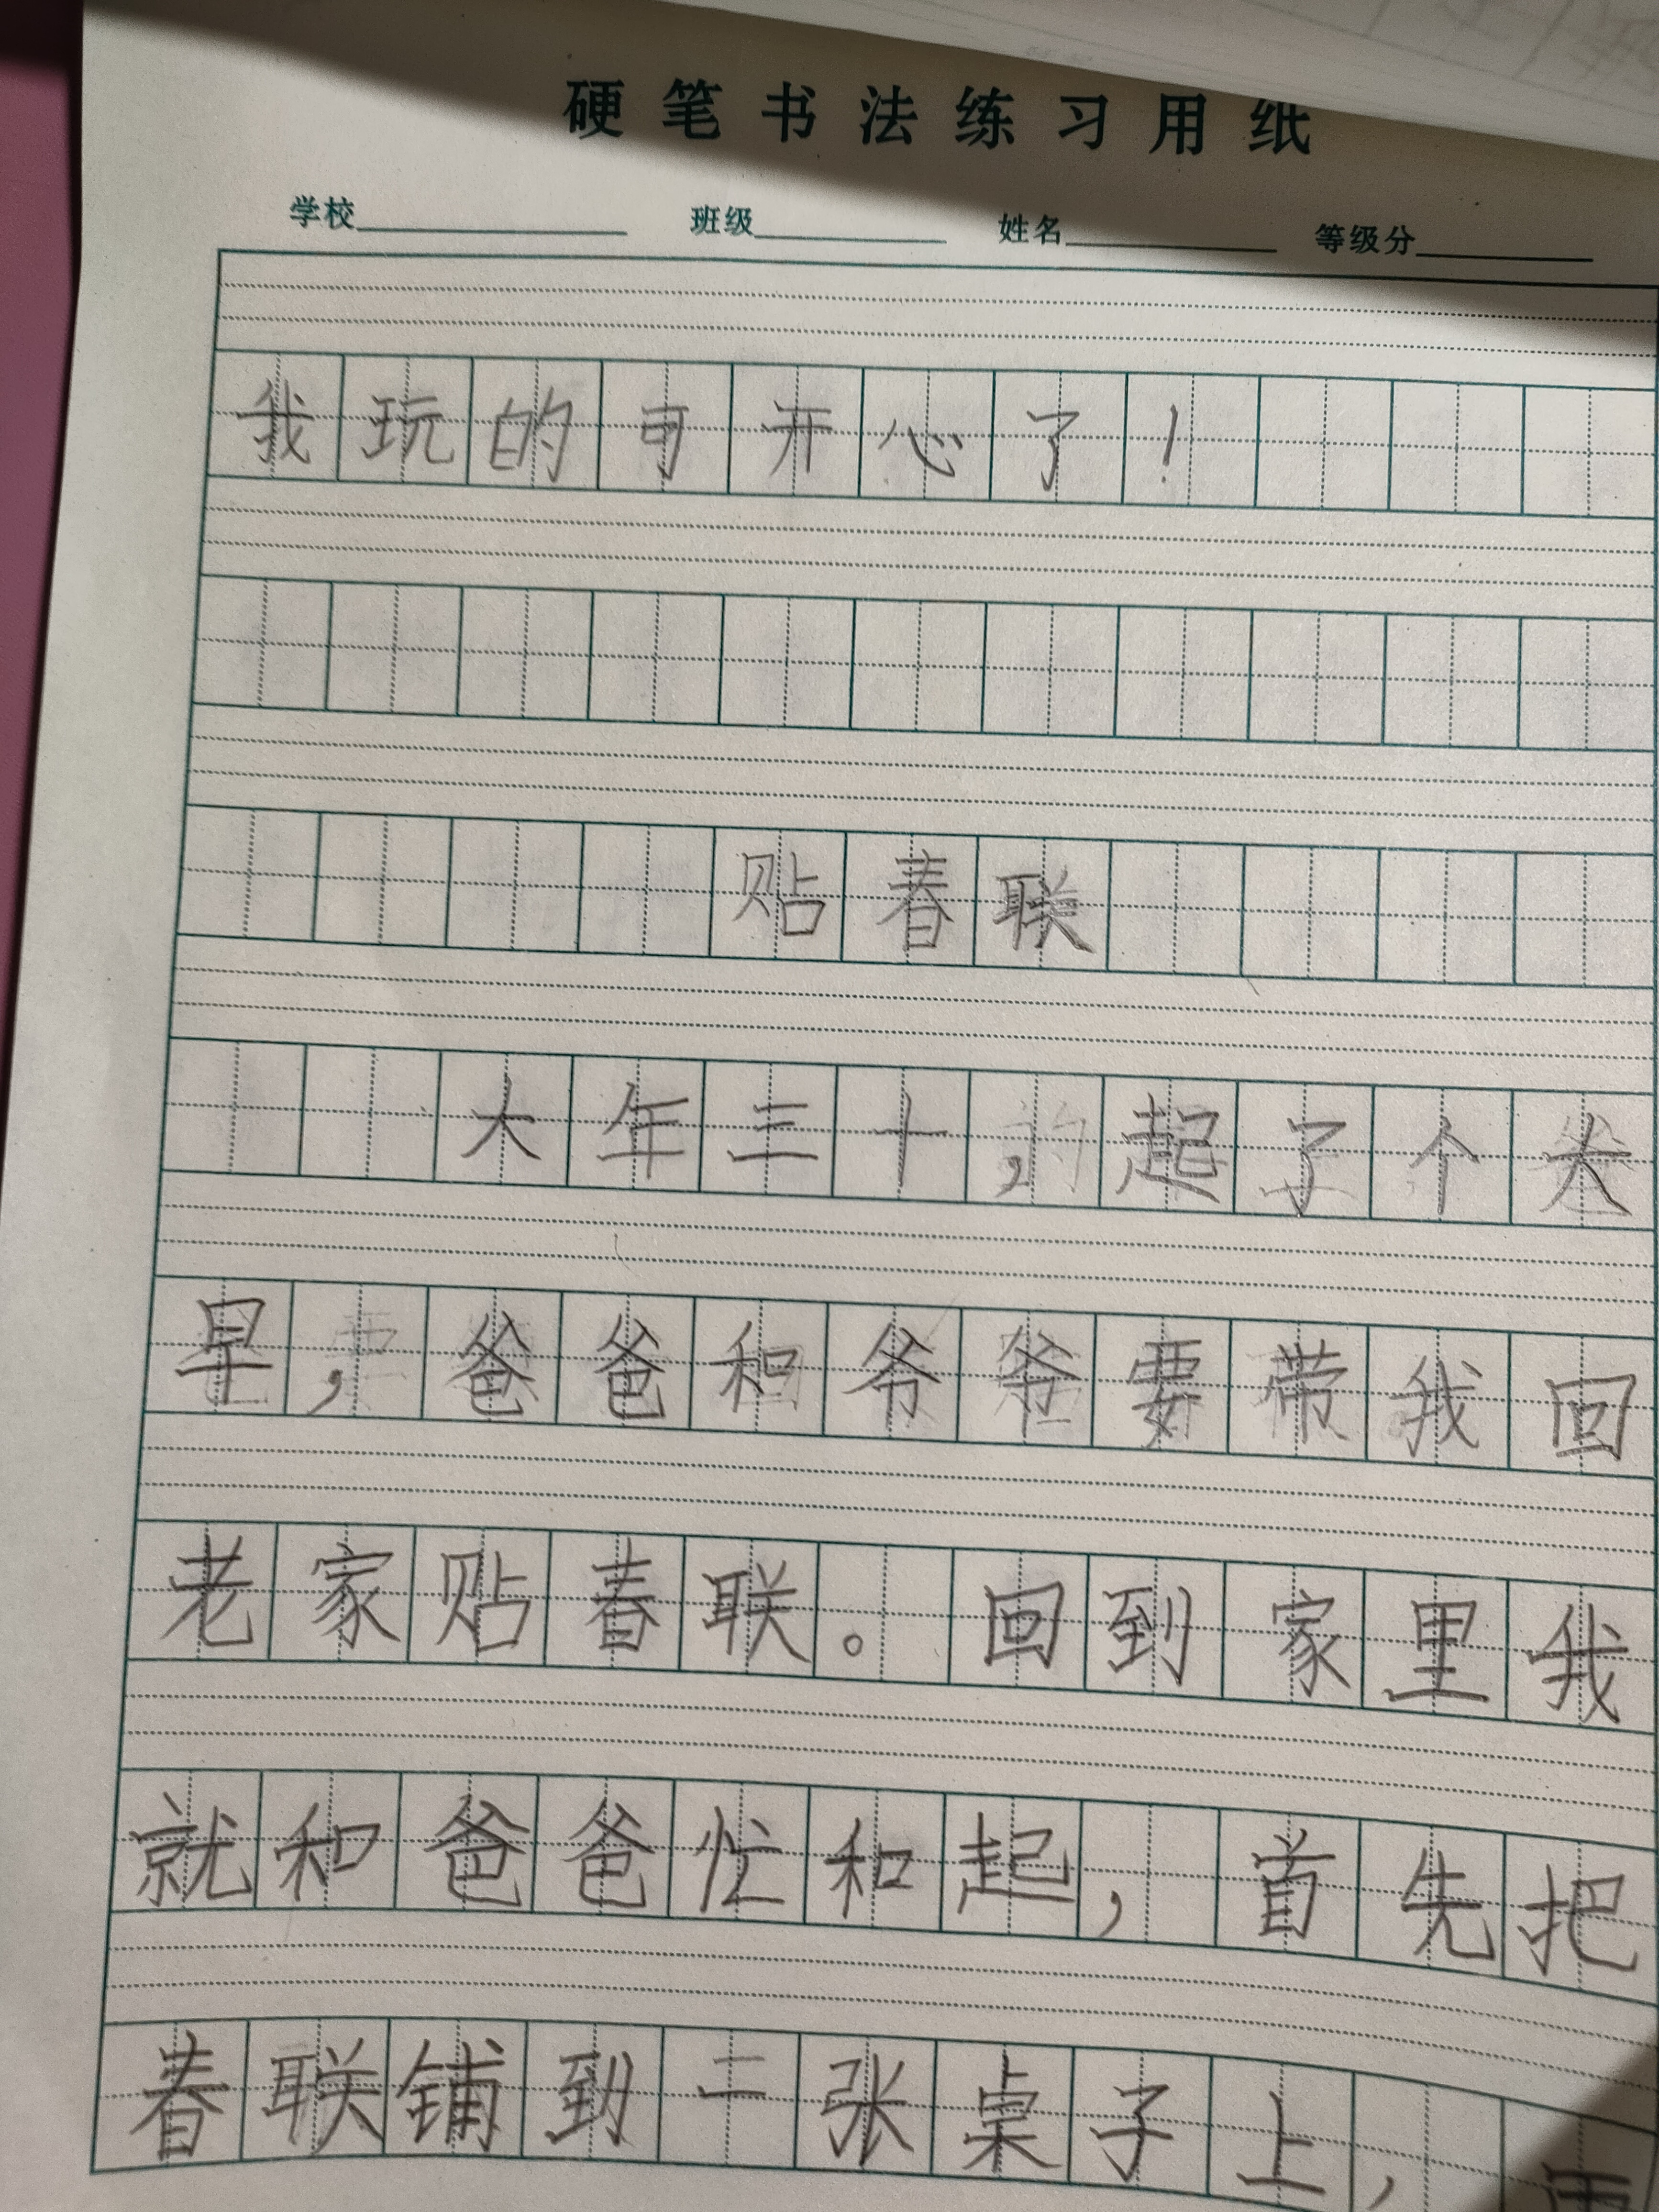 硬笔书法练习用纸
学校 班级 姓名 等级分
我玩的可开心了！
贴春联
大年三十，起了个大
早，爸爸和爷爷要带我回
老家贴春联。回到家里我
就和爸爸忙和起，首先把
春联铺到一张桌子上，